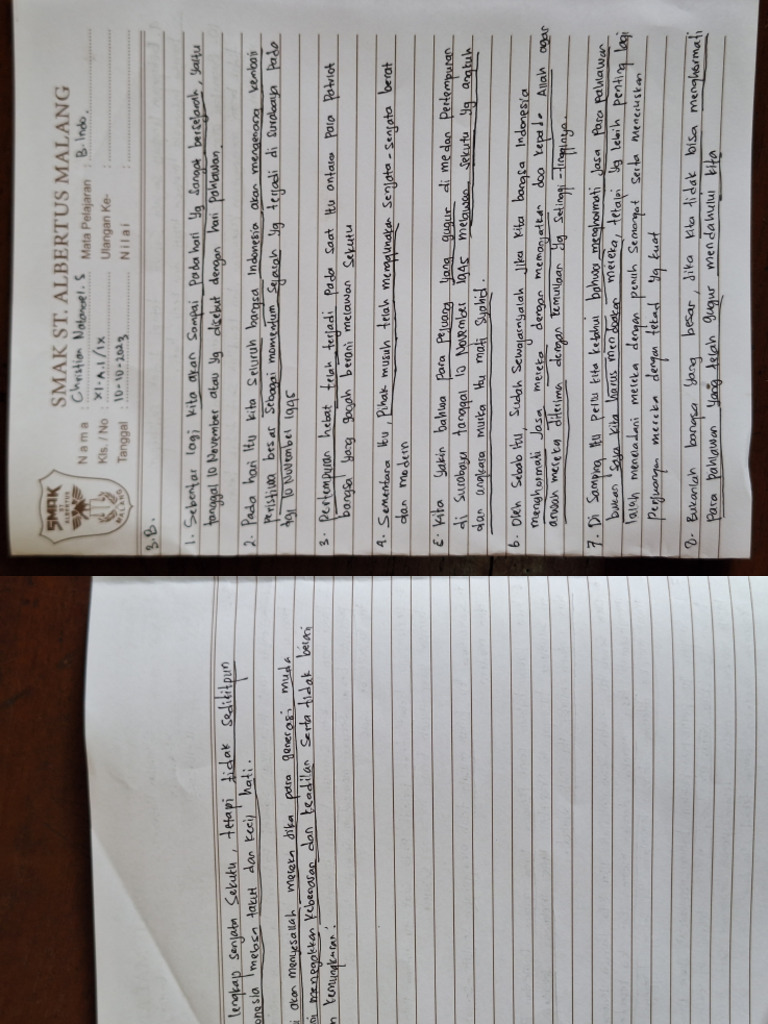 SMAK ST. ALBERTUS MALANG
Nama : Christian Natanael. S Mata Pelajaran : B. Indo.
Kls. / No : XI-A.1 / IX Ulangan Ke- :
Tanggal : 10-10-2023 Nilai :
SMAK
ST.
ALBERTUS
MALANG
3.B.
1. Sebentar lagi kita akan sampai pada hari yg sangat bersejarah, yaitu
tanggal 10 November atau yg disebut dengan hari pahlawan.
2. Pada hari itu kita seluruh bangsa Indonesia akan mengenang kembali
peristiwa besar sebagai momentum sejarah yg terjadi di surabaya pada
tgl 10 November 1945
3. Pertempuran hebat telah terjadi pada saat itu antara para patriot
bangsa yang gagah berani melawan sekutu
4. Sementara itu, pihak musuh telah menggunakan senjata-senjata berat
dan modern
5. Kita yakin bahwa para pejuang yang gugur di medan pertempuran
di surabaya tanggal 10 November 1945 melawan sekutu yg angkuh
dan angkara murka itu mati syahid.
6. Oleh sebab itu, sudah sewajarnyalah jika kita bangsa Indonesia
menghormati jasa mereka dengan memanjatkan doa kepada Allah agar
arwah mereka diterima dengan kemuliaan yg setinggi-tingginya.
7. Di samping itu perlu kita ketahui bahwa menghormati jasa para pahlawan
bukan saja kita harus mendoakan mereka, tetapi yg lebih penting lagi
ialah meneladani mereka dengan penuh semangat serta meneruskan
perjuangan mereka dengan tekad yg kuat
8. Bukanlah bangsa yang besar, jika kita tidak bisa menghormati
para pahlawan yang telah gugur mendahului kita
lengkap senjata sekutu, tetapi tidak sedikitpun
ongsia merasa takut dan kecil hati.
i akan menyesallah mereka jika para generasi muda
ni menegakkan kebenaran dan keadilan serta tidak berani
n kemungkaran.